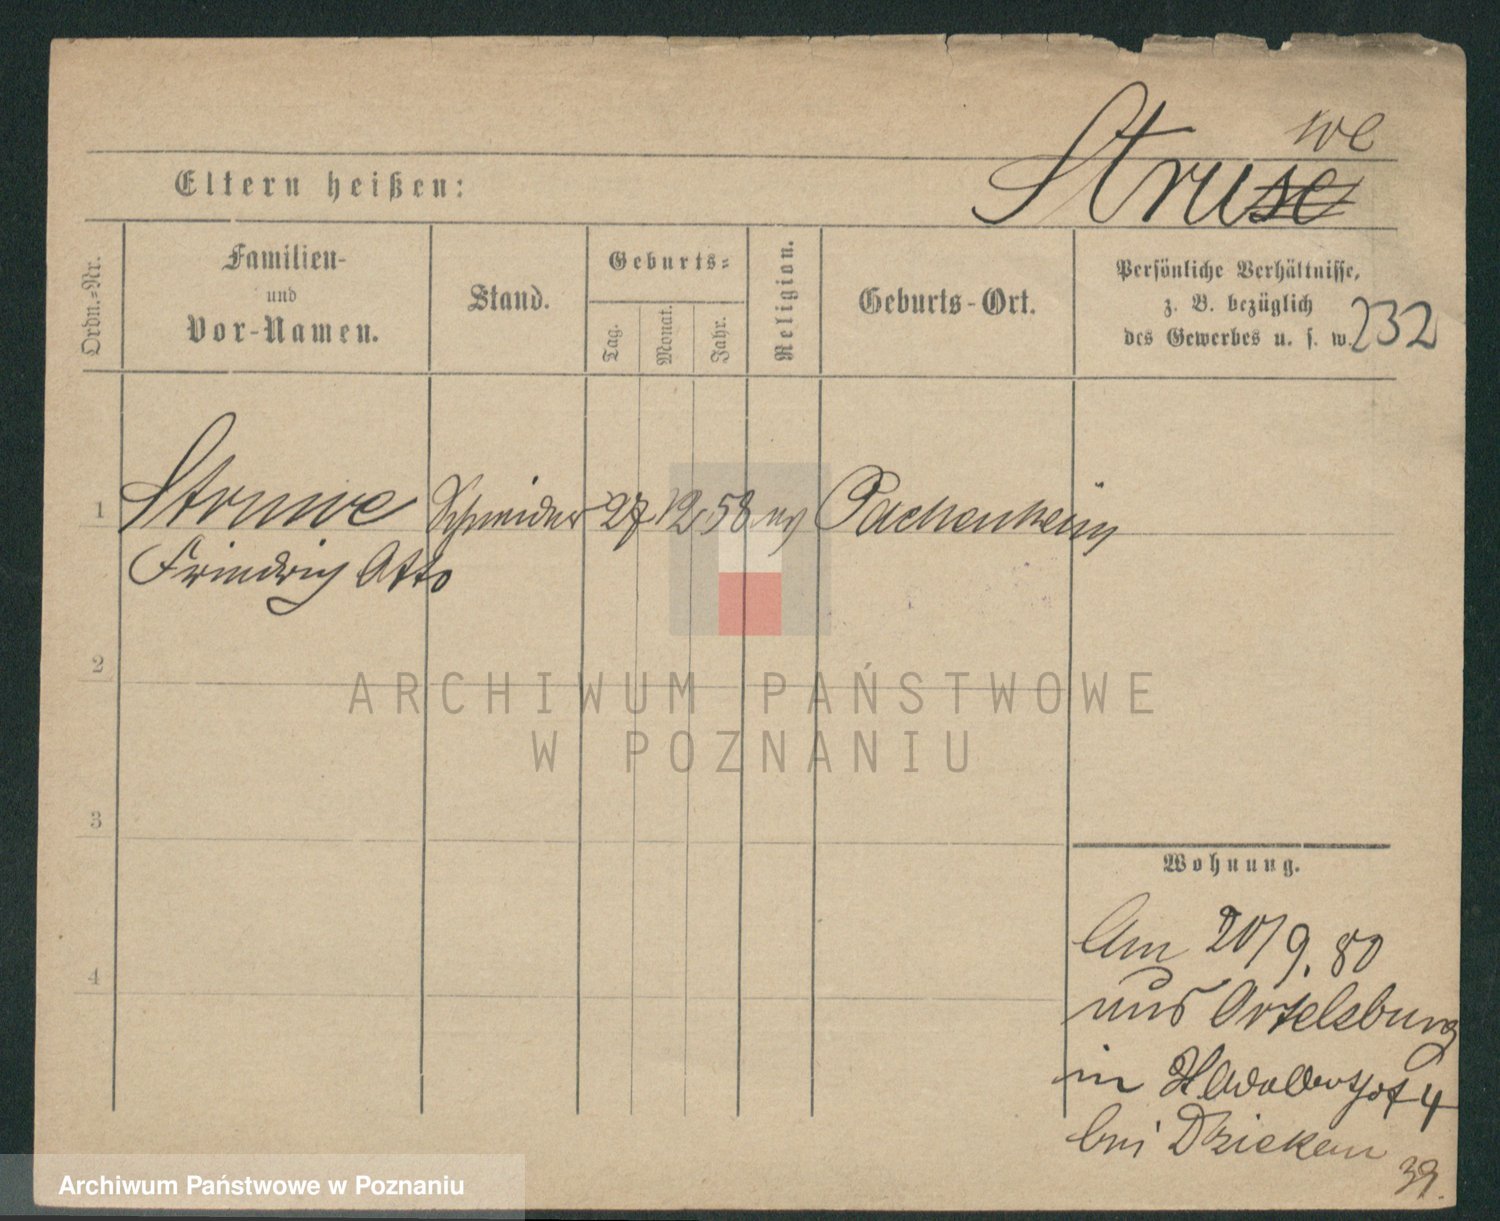 we
Struse
Eltern heißen:
Ordn.-Nr.
Familien-
und
Vor-Namen.
Stand.
Geburts-
Tag.
Monat.
Jahr.
Religion.
Geburts-Ort.
Persönliche Verhältnisse,
z. B. bezüglich
des Gewerbes u. s. w.
232
1 Struwe Schneider 27. 12. 58 ev
Friedrich Otto
2
ARCHIWUM PAŃSTWOWE
W POZNANIU
3
Wohnung.
Am 20/9. 80
4
aus Ortelsburg
in 4
bei
39.
Archiwum Państwowe w Poznaniu